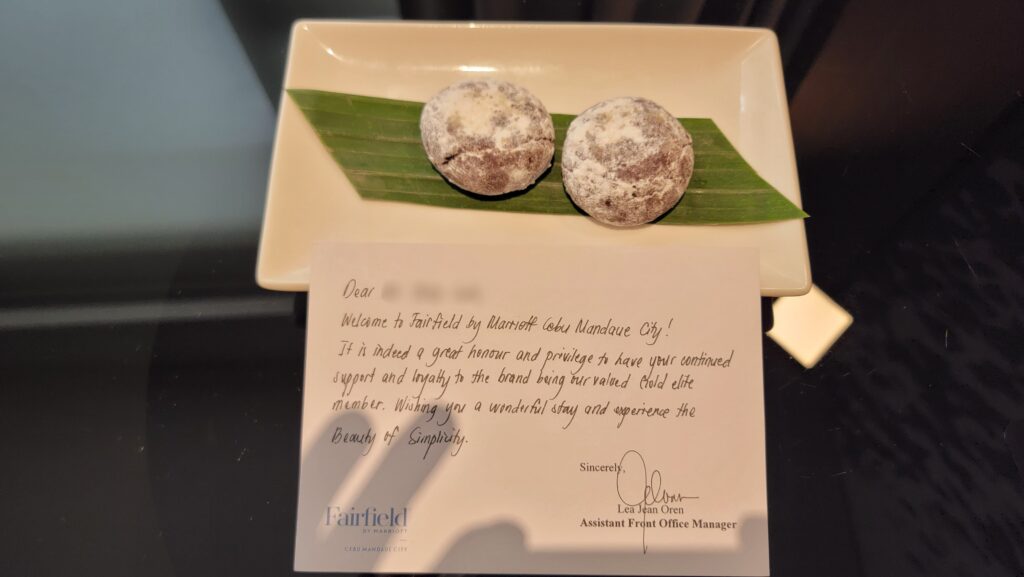 Dear
Welcome to Fairfield by Marriott Cebu Mandaue City!
It is indeed a great honour and privilege to have your continued
support and loyalty to the brand being our valued Gold elite
member. Wishing you a wonderful stay and experience the
Beauty of Simplicity.
Sincerely,
Lea Jean Oren
Assistant Front Office Manager
Fairfield
BY MARRIOTT
CEBU MANDAUE CITY